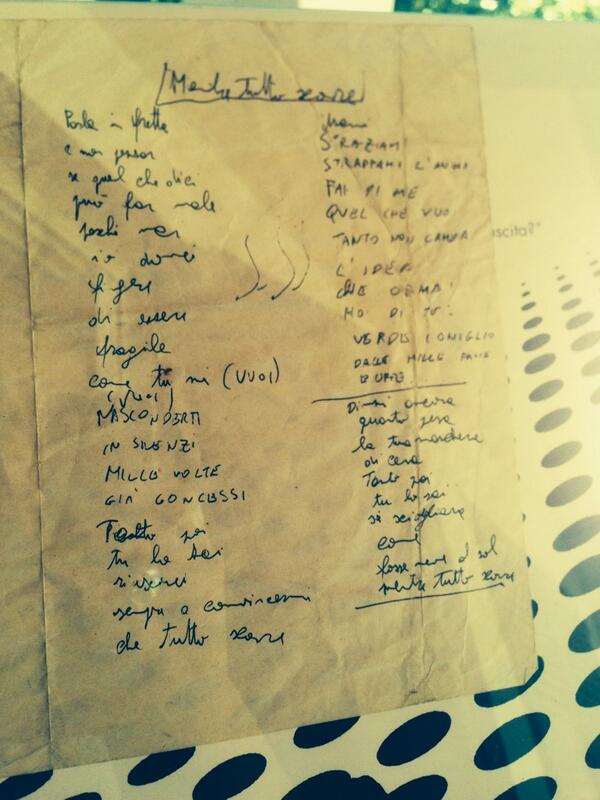 Mentre tutto scorre
Parla in fretta
e non pensar
se quel che dici
può far male
perché mai
io dovrei
fingere
di essere
fragile
come tu mi (VUOI)
(VUOI)
NASCONDERTI
IN SILENZI
MILLE VOLTE
GIÀ CONCESSI
Tanto poi
tu lo sai
riuscirei
sempre a convincermi
che tutto scorre
Usami
STRAZIAMI
STRAPPAMI L'ANIMA
FAI DI ME
QUEL CHE VUOI
TANTO NON CAMBIA
L'IDEA
CHE ORMAI
HO DI TE:
VERDE CONIGLIO
DALLE MILLE FACCE
BUFFE
Dimmi ancora
quanto pesa
la tua maschera
di cera
Tanto poi
tu lo sai
si scioglierà
come
fosse neve al sol
mentre tutto scorre
uscita?"